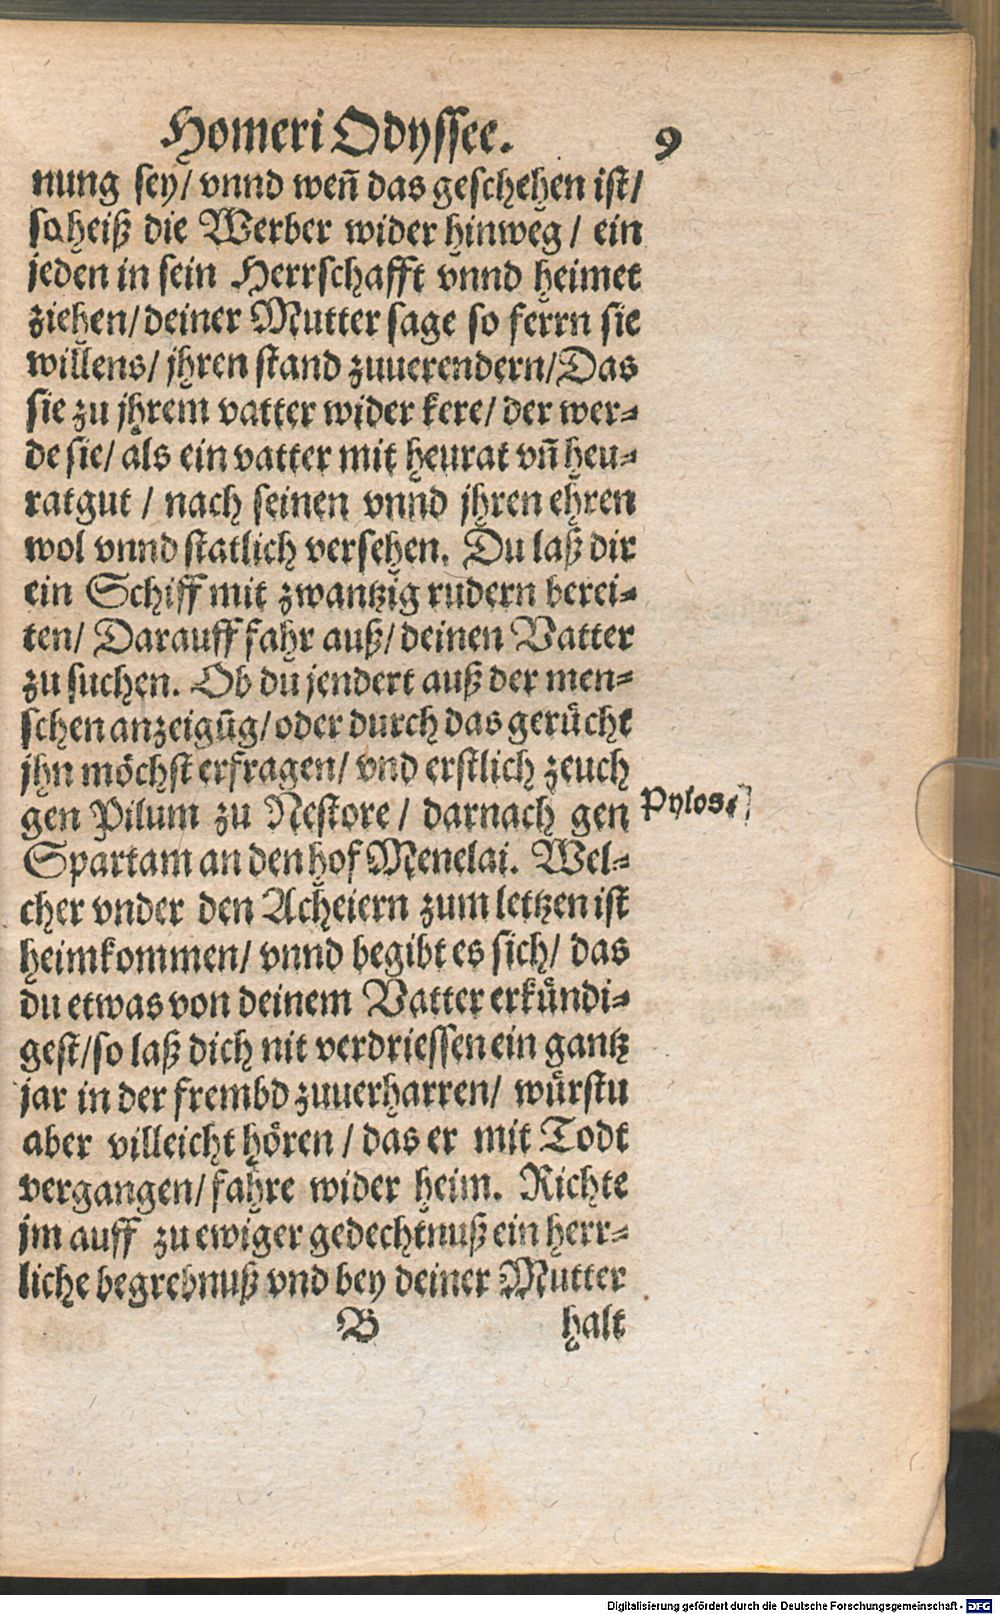 Homeri Odyssee. 9
nung sey/ vnnd weñ das geschehen ist/
so heiß die Werber wider hinweg/ ein
jeden in sein Herrschafft vnnd heimet
ziehen/ deiner Mutter sage so ferrn sie
willens/ jhren stand zuuerendern/ Das
sie zu jhrem vatter wider kere/ der wer⸗
de sie/ als ein vatter mit heurat vñ heu⸗
ratgut / nach seinen vnnd jhren ehren
wol vnnd statlich versehen. Du laß dir
ein Schiff mit zwantzig rudern berei⸗
ten/ Darauff fahr auß/ deinen Vatter
zu suchen. Ob du jendert auß der men⸗
schen anzeigūg/ oder durch das gerücht
jhn möchst erfragen/ vnd erstlich zeuch
gen Pilum zu Nestore / darnach gen
Pylos.
Spartam an den hof Menelai. Wel⸗
cher vnder den Acheiern zum letzen ist
heimkommen/ vnnd begibt es sich/ das
du etwas von deinem Vatter erkündi⸗
gest/ so laß dich nit verdriessen ein gantz
jar in der frembd zuuerharren/ würstu
aber villeicht hören / das er mit Todt
vergangen/ fahre wider heim. Richte
jm auff zu ewiger gedechtnuß ein herr⸗
liche begrebnuß vnd bey deiner Mutter
B halt
Digitalisierung gefördert durch die Deutsche Forschungsgemeinschaft - DFG